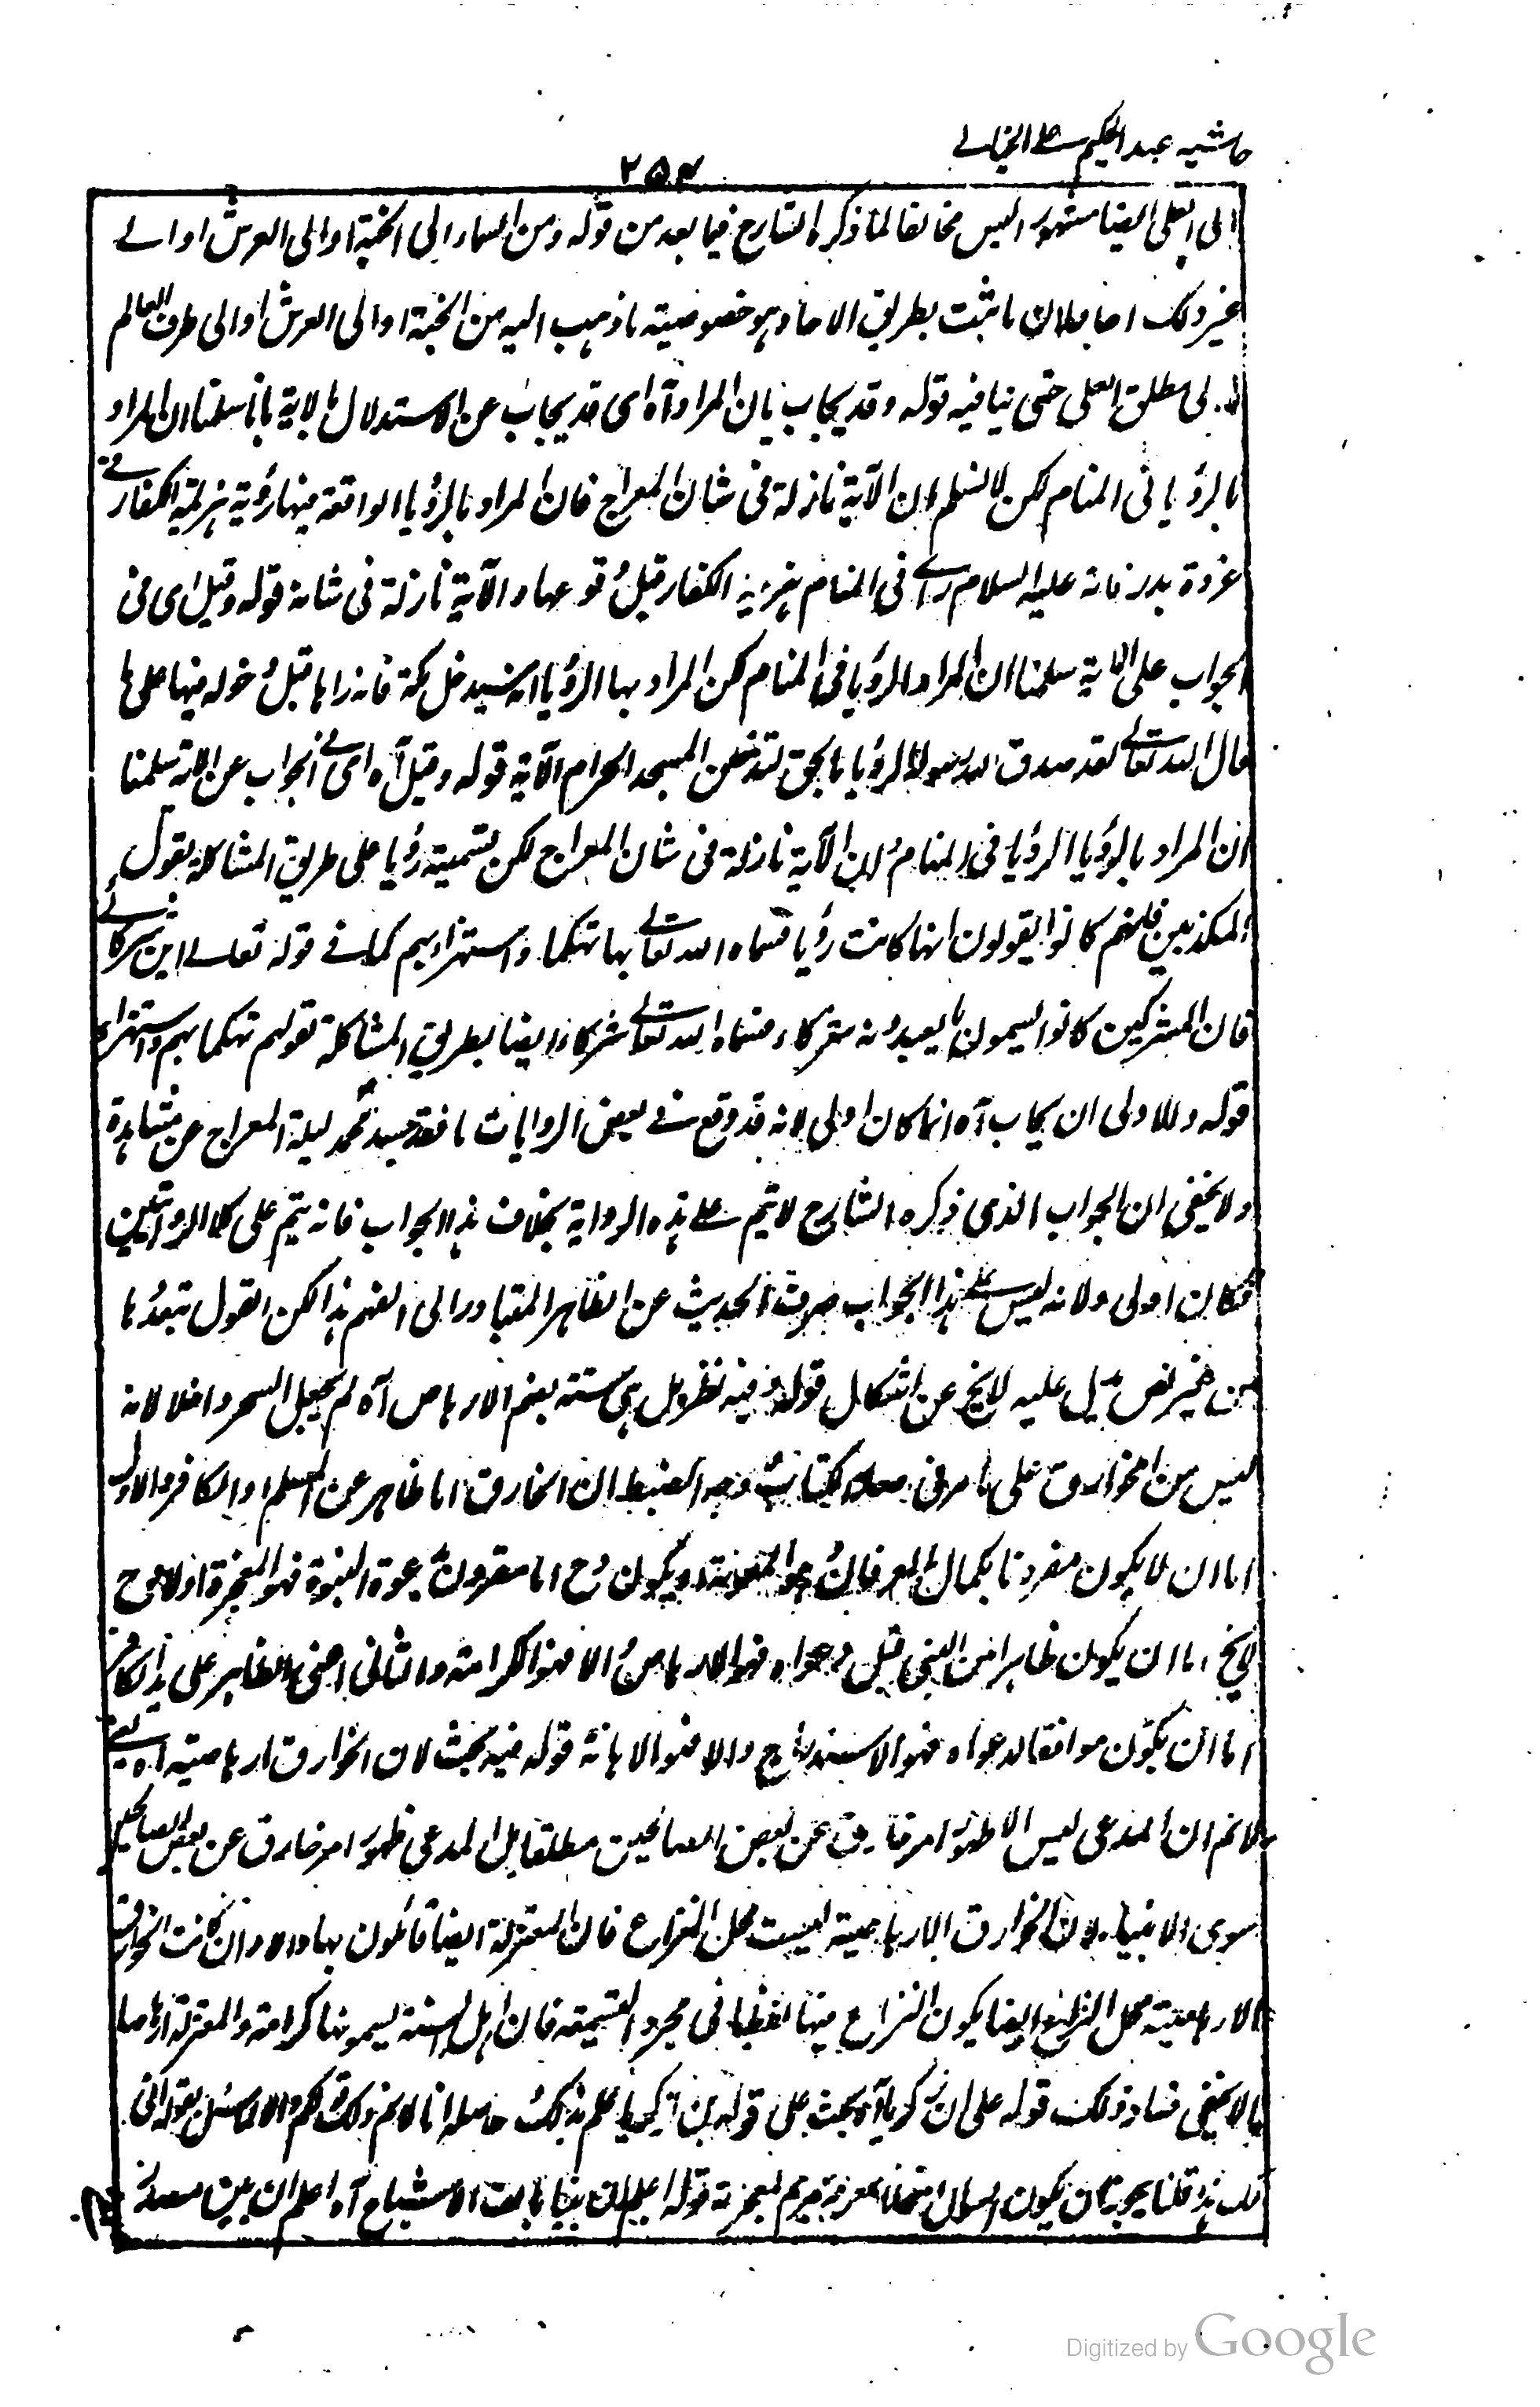 حاشیه عبد الحکیم علی الخیالے
۲۵۴
الی العلی ایضا مشهور الیس مخالفا لما ذکره الشارح فیما بعد من قوله ومن السماء الی الجنة او الی العرش او الے
غیر ذلک احاد لان ما ثبت بطریق الاحاد هو خصوصیته ما ذهب الیه من الجنة او الی العرش او الی طرف العالم
لا الی مطلق العلی حتی ینافیه قوله وقد یجاب بان المراد آه ای قد یجاب عن الاستدلال بالایة بانا سلمنا ان المراد
بالرؤیا فی المنام لکن لا نسلم ان الآیة نازلة فی شان المعراج فان المراد بالرؤیا الواقعة فیها رؤیة هزیمة الکفار فے
غزوة بدر فانه علیه السلام رای فی المنام هزیمة الکفار قبل وقوعها والآیة نازلة فی شانه قوله وقیل ای فی
الجواب علی الایة سلمنا ان المراد الرؤیا فی المنام لکن المراد بها الرؤیا انه سیدخل مکة فانه راها قبل دخوله فیها علی ما
قال الله تعالے لقد صدق الله رسوله الرؤیا بالحق لتدخلن المسجد الحرام الآیة قوله وقیل آه ای فے الجواب عن الایة سلمنا
ان المراد بالرؤیا الرؤیا فی المنام وان الآیة نازلة فی شان المعراج لکن تسمیته رؤیا علی طریق المشاکلة بقول
المکذبین فانهم کانوا یقولون انها کانت رؤیا فسماه الله تعالے بها تهکما واستهزاء بهم کما فے قوله تعالے این شرکائے
فان المشرکین کانوا یسمون ما یعبدونه شرکاء فسماه الله تعالے شرکاء ایضا بطریق المشاکلة لقولهم تهکما بهم واستهزاء
قوله والاولی ان یجاب آه انما کان اولی لانه قد وقع فے بعض الروایات ما فقد جسد محمد لیلة المعراج عن مشاهدة
ولا یخفی ان الجواب الذی ذکره الشارح لا یتم علی هذه الروایة بخلاف هذا الجواب فانه یتم علی کلا الروایتین
فکان اولی ولانه لیس علی هذا الجواب صرف الحدیث عن الظاهر المتبادر الی الفهم هذا لکن القول بتعددها
من غیر نص یدل علیه لا یخ عن اشکال قوله وفیه نظر بل هی ستة بضم الارهاص آه لم یجعل السحر داخلا لانه
لیس من الخوارق علی ما مر فی صدر الکتاب وجه الضبط ان الخارق اما ظاهر عن المسلم او الکافر والاول
اما ان لا یکون مقرونا بکمال العرفان وهو المعونة او یکون وح اما مقرون بدعوة النبوة فهو المعجزة اولا وح
لا یخ اما ان یکون ظاهرا من النبی قبل دعواه فهو الارهاص والا فهو الکرامة والثانی اعنی الظاهر علی ید الکافر
اما ان یکون موافقا لدعواه فهو الاستدراج والا فهو الاهانة قوله فیه بحث لان الخوارق ارهاصیته آه یعنے
لا نم ان المدعی لیس الا ظهور امر خارق عن بعض الصالحین مطلقا بل المدعی ظهور امر خارق عن بعض الصالحین
سوی الانبیاء لان الخوارق الارهاصیة لیست محل النزاع فان المعتزلة ایضا قائلون بها والا وان کانت الخوارق
الارهاصیة محل النزاع ایضا یکون النزاع فیها لفظیا فی مجرد التسمیة فان اهل السنة یسمونها کرامة والمعتزلة ارهاصا
ولا یخفی فساد ذلک قوله علی ان زکریا آه بحث علی قوله بن زکریا علم بذلک حاصله انا لا نم ذلک والا لما سئل بقوله انی
لک هذا قلنا یجوز ان یکون السوال امتحانا لمعرفة مریم لمعجزته قوله اعلم ان بینا بالف الاشباع آه اعلم ان بین مصدر